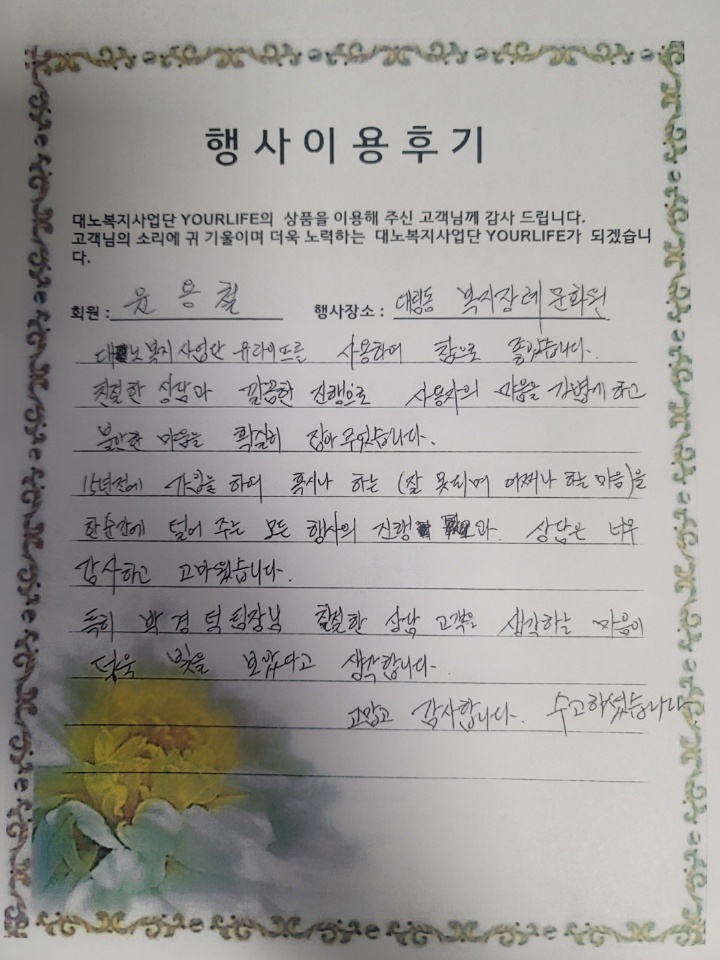 행사이용후기
대노복지사업단 YOURLIFE의 상품을 이용해 주신 고객님께 감사 드립니다.
고객님의 소리에 귀 기울이며 더욱 노력하는 대노복지사업단 YOURLIFE가 되겠습니
다.
회원 : 윤용철 행사장소 : 대림동 복지장례문화원
대노복지사업단 유라이프를 사용하여 참으로 좋았습니다.
친절한 상담과 깔끔한 진행으로 사용자의 마음을 가볍게 하고
불안한 마음을 확실히 잡아주었습니다.
15년전에 가입을 하여 혹시나 하는 (잘 못되며 어쩌나 하는 마음)을
한순간에 덜어 주는 모든 행사의 진행과 상담은 너무
감사하고 고마웠습니다.
특히 박경덕팀장님 친절한 상담 고객을 생각하는 마음이
더욱 빛을 보았다고 생각합니다.
고맙고 감사합니다. 수고하셨습니다